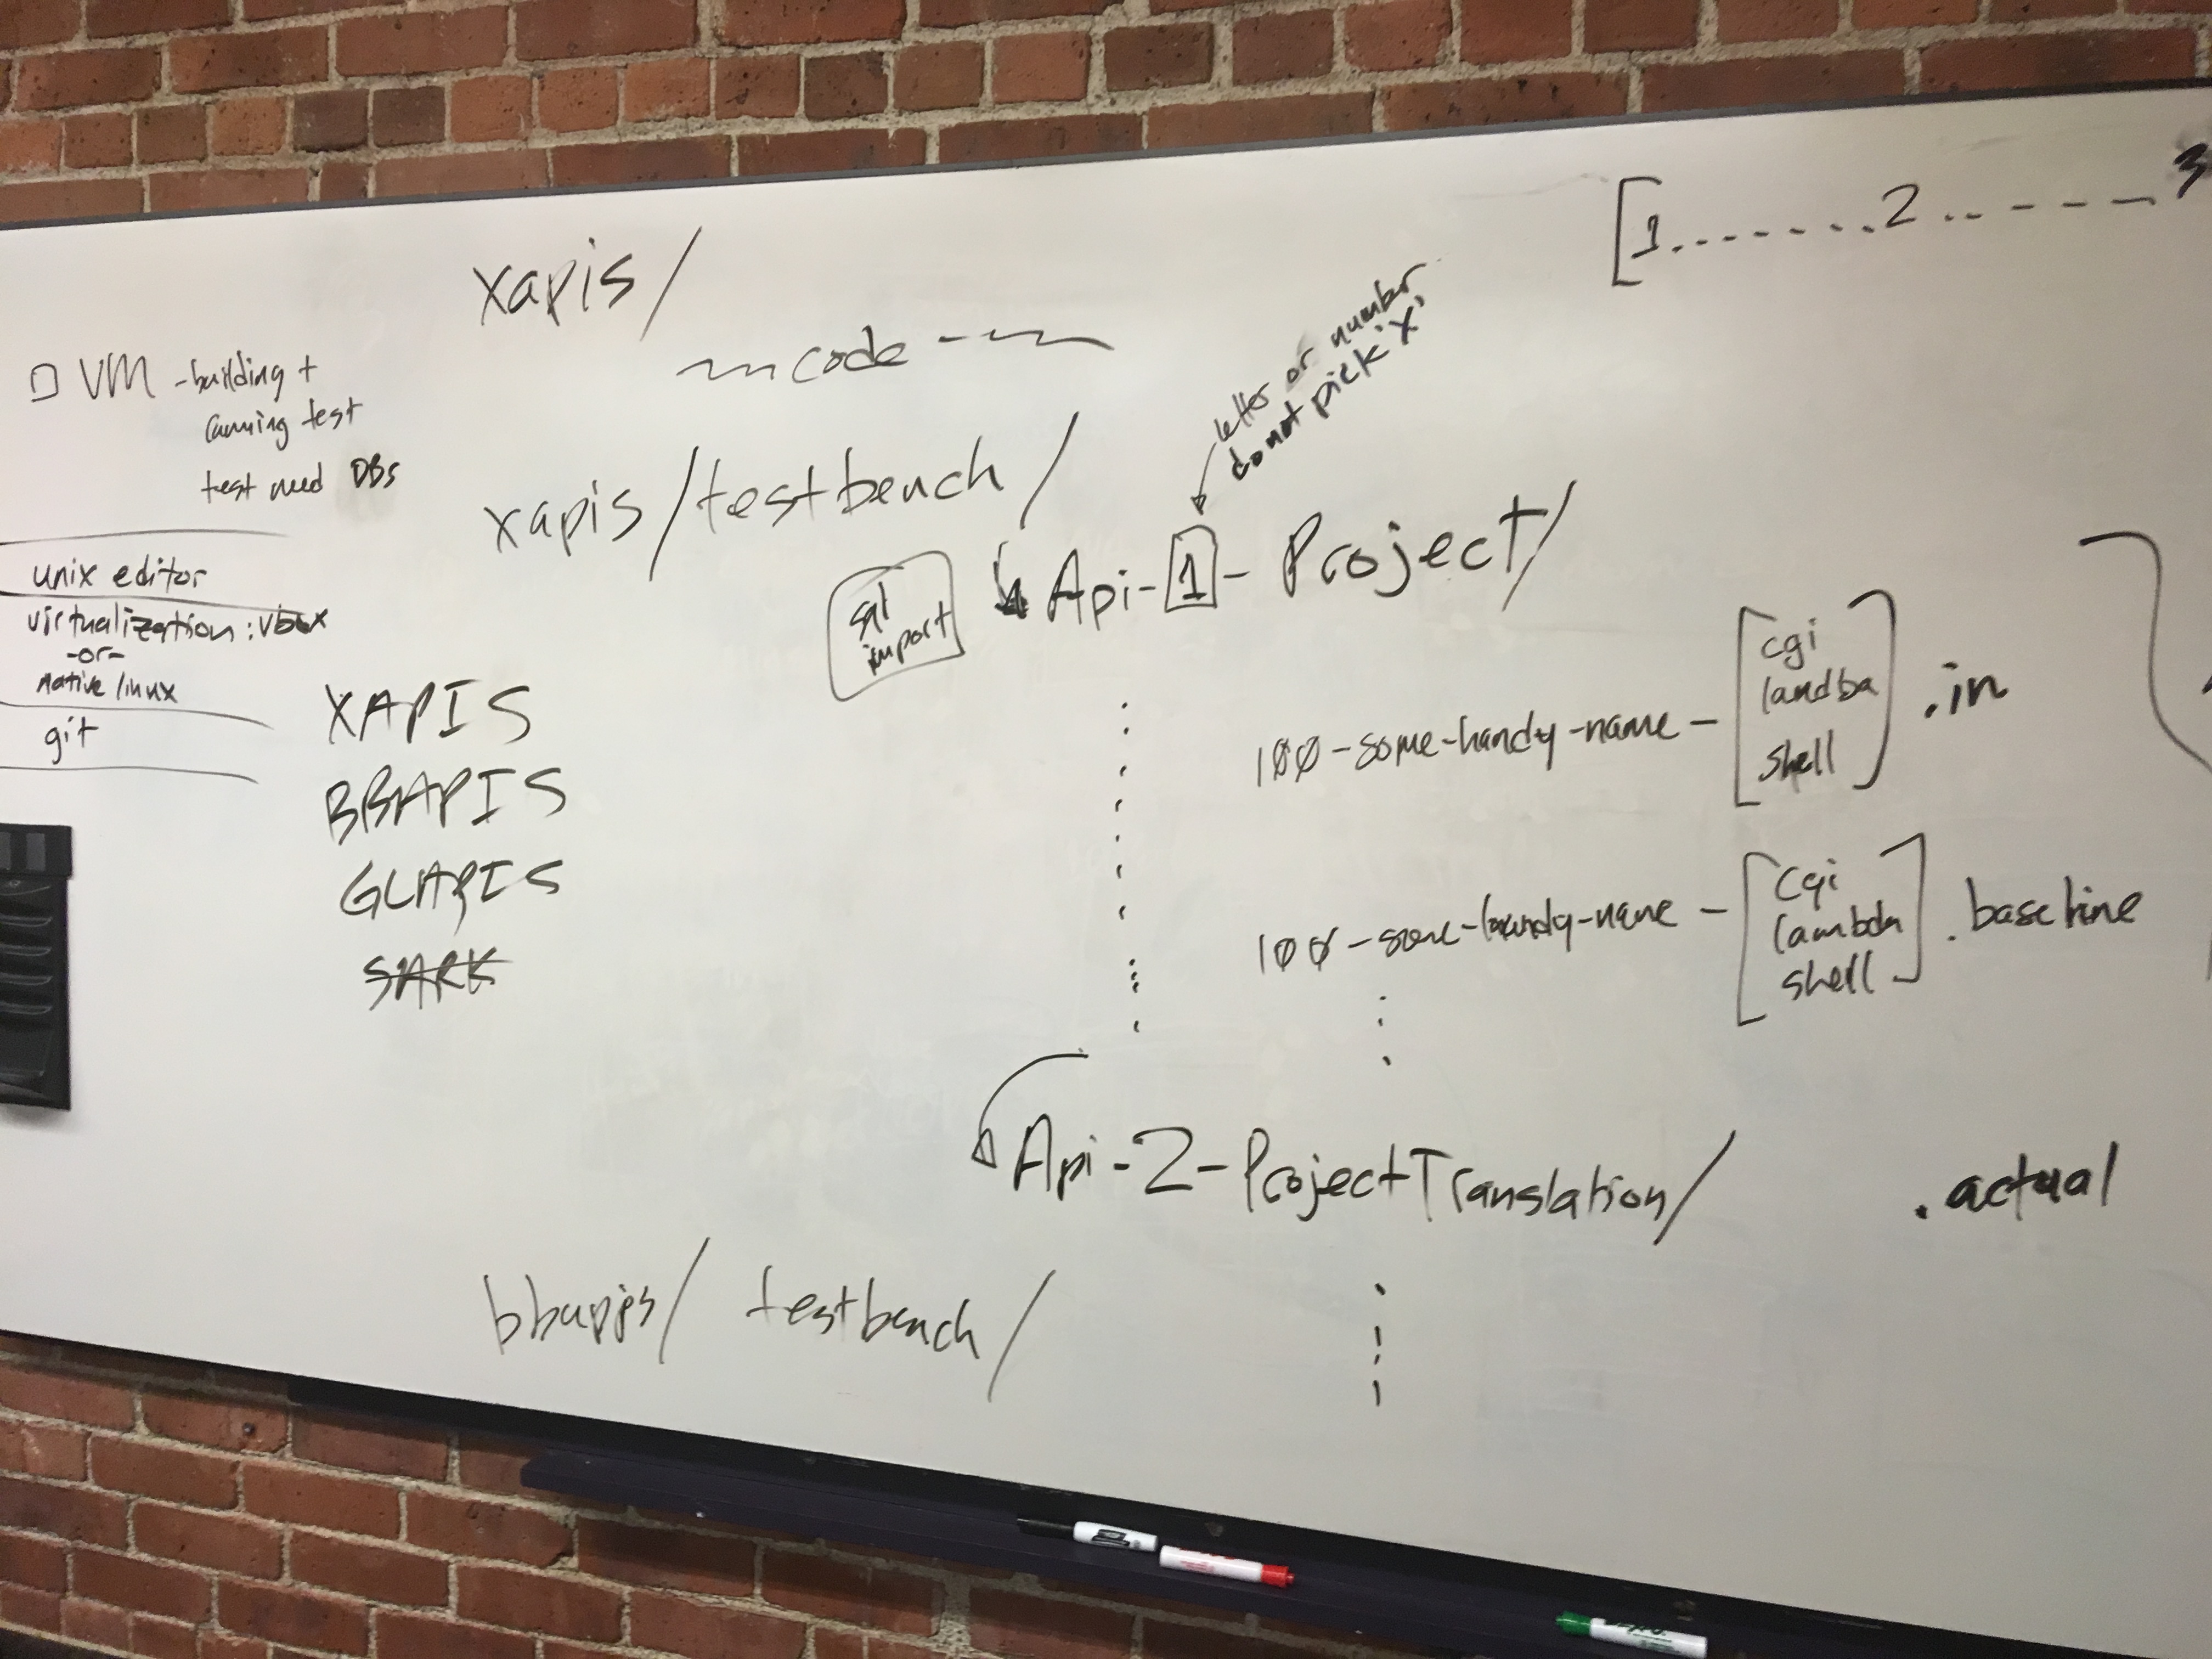 [1.......2..----3
xapis/
~~ code ~~
letter or number
do not pick 'x'
□ VM - building +
running test
test need DBs
xapis/testbench/
sql
import
Api-1-Project/
unix editor
virtualization: vbox
-or-
native linux
git
XAPIS
BBAPIS
GLAPIS
SARK
100-some-handy-name-[cgi
landba
shell].in
100-some-handy-name-[cgi
lambda
shell].baseline
Api-2-ProjectTranslation/
.actual
bbapis/ testbench/